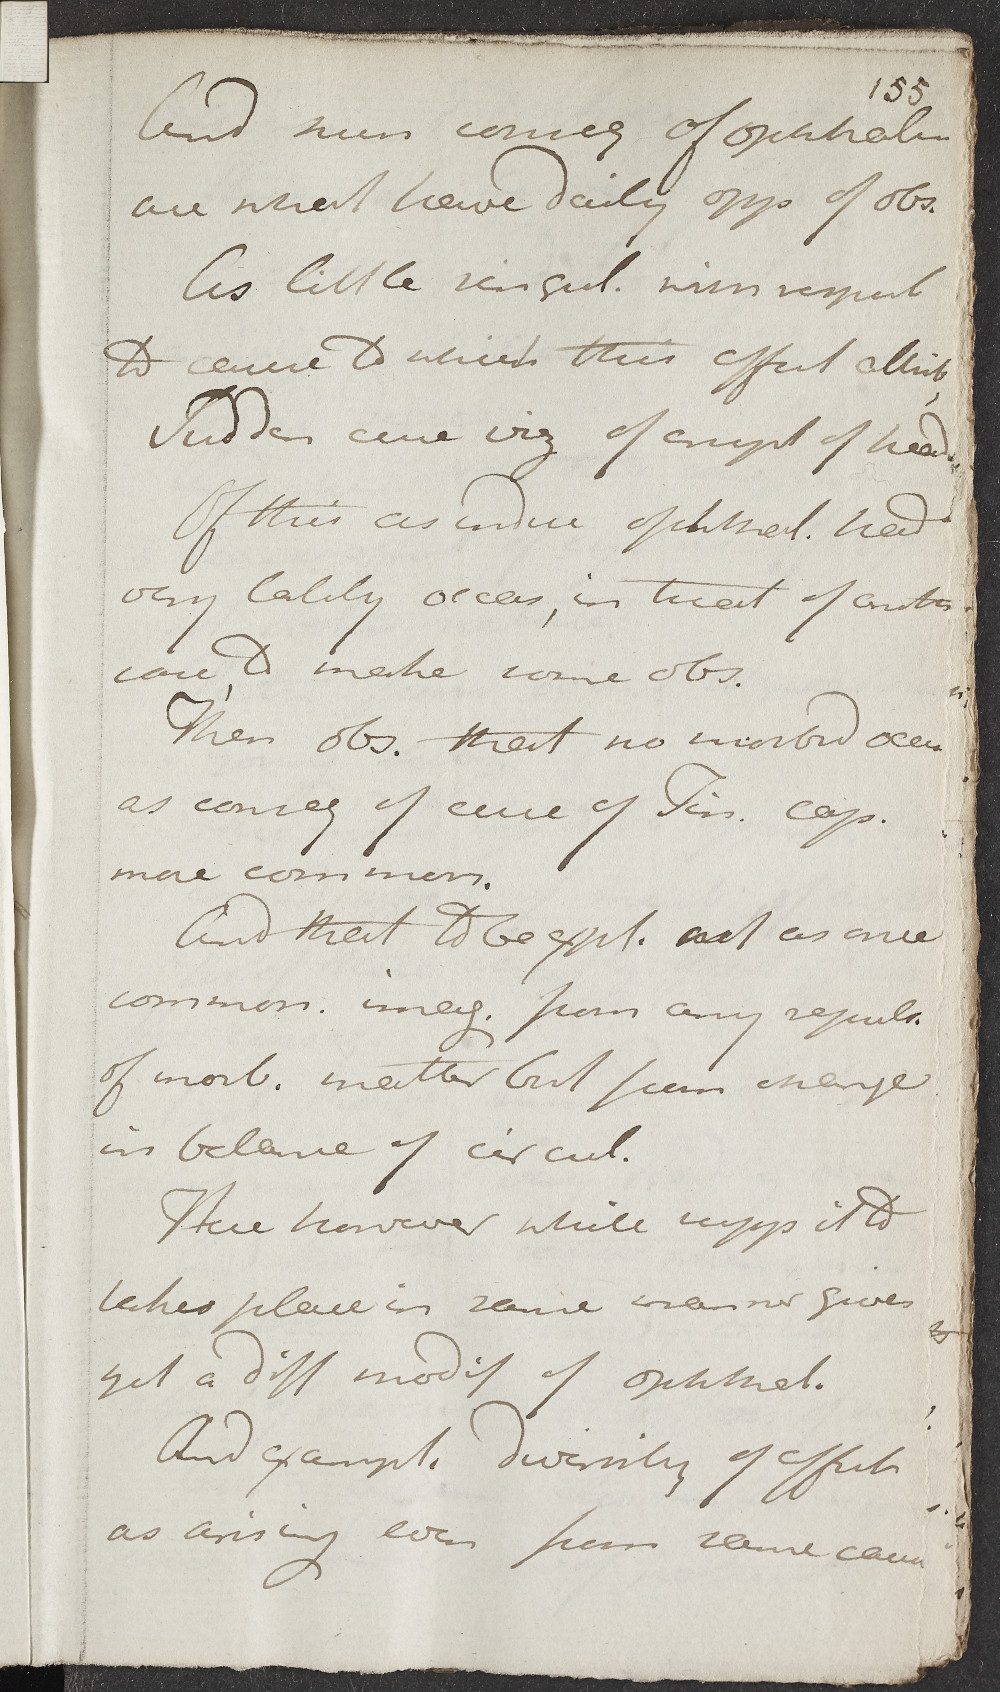 155
And such conseq of ophthalm
are what have daily opps of obs.
As little singul. with respect
to cause to which this effect attrib,
Sudden cure viz of erupt of head.
Of this as induc ophthal. had
very lately occas, in treat of another
case, to make some obs.
Then obs. that no morbid occur
as conseq of cure of Tin. cap.
more common.
And that to be expl. not as once
common. imag. from any repuls.
of morb. matter but from change
in balance of circul.
Here however while supps it to
takes place in same manner gives
yet a diff modif of ophthal.
And exampl. diversity of effects
as arising even from same cause